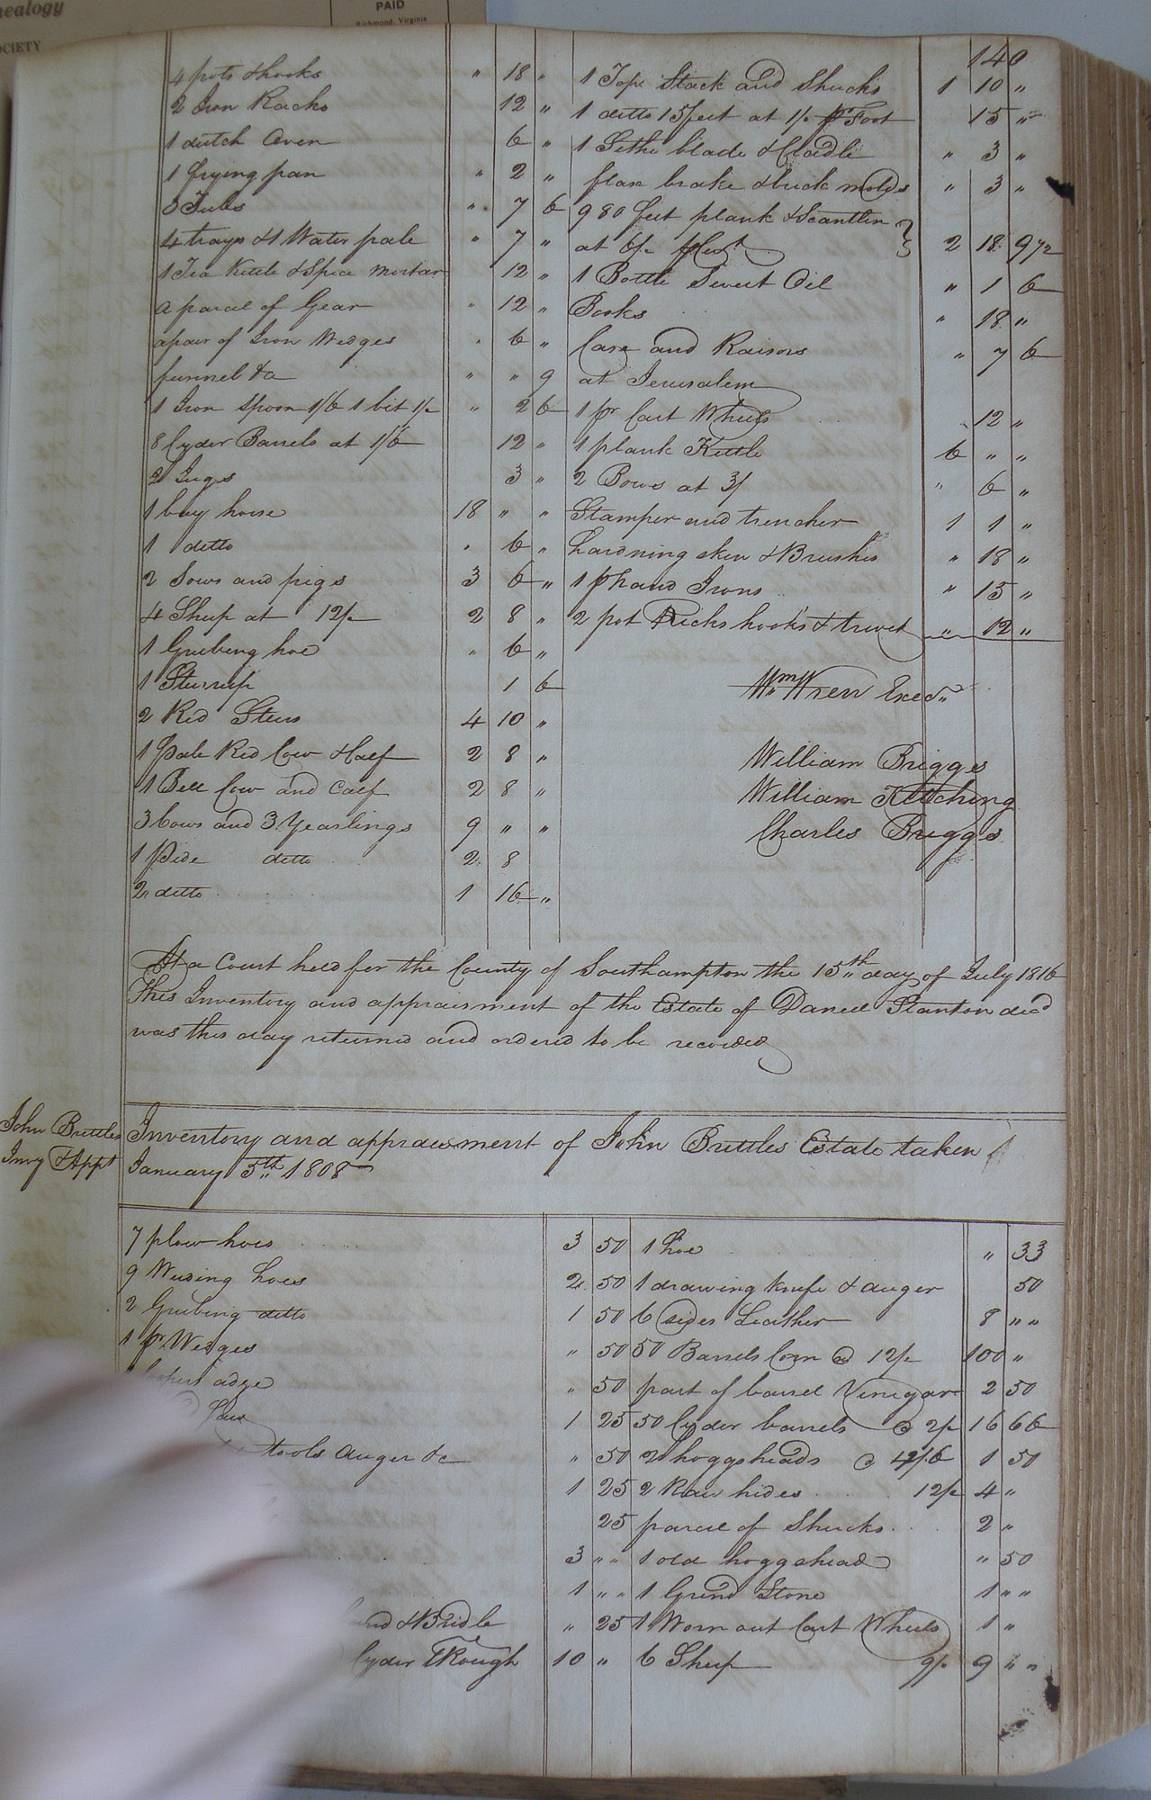 nealogy
OCIETY
PAID
Richmond, Virginia
140
4 pots & hooks " 18 "
2 Iron Racks 12 "
1 dutch Oven 6 "
1 frying pan " 2 "
3 Tubs " 7 6
4 trays & 1 Water pale " 7 "
1 Tea Kettle & Spice mortar 12 "
a parcel of Gear " 12 "
a pair of Iron Wedges " 6 "
funnel &a " " 9
1 Iron Spoon 1/6 1 bit 1/- " 2 6
8 Cyder Barrels at 1/6 12 "
2 Jugs 3 "
1 bay horse 18 " "
1 ditto " 6 "
2 Sows and pigs 3 6 "
4 Sheep at 12/- 2 8 "
1 Grubing hoe " 6 "
1 Sturrup 1 6
2 Red Steers 4 10 "
1 Pale Red Cow & Calf 2 8 "
1 Bell Cow and Calf 2 8 "
3 Cows and 3 Yearlings 9 " "
1 Pide ditto 2 8
2 ditto 1 16 "
1 Tops Stack and Shucks 1 10 "
1 ditto 15 feet at 1/- pr Foot 15 "
1 Sithe blade & Cladle " 3 "
flax brake & buck molds " 3 "
980 feet plank & Scantlin
at 6/- 2 18 9 1/2
1 Bottle Sweet Oil " 1 6
Books " 18 "
Case and Raisors " 7 6
at Jerusalem
1 pr Cart Wheels 12 "
1 plank Kettle 6 " "
2 Bows at 3/ " 6 "
Stamper and trencher 1 1 "
hardning skin & Brushes " 18 "
1 pr hand Irons " 15 "
2 pot Racks hooks & trivet " 12 "
Wm Wren Exer
William Briggs
William Kitching
Charles Briggs
At a Court held for the County of Southampton the 15th day of July 1816
This Inventory and appraisment of the Estate of Daniel Stanton decd
was this day returned and ordered to be recorded
John Brittles
Invy & Appt
Inventory and appraisment of John Brittles Estate taken
January 5th 1808
7 plow hoes 3 50
9 Weeding hoes 2 50
2 Grubing ditto 1 50
1 pr Wedges " 50
adze " 50
1 25
tools auger &c " 50
1 25
25
3 " "
1 " "
& Bridle " 25
Cyder Trough 10 "
1 hoe " 33
1 drawing knife & auger 50
6 sides Leather 8 " "
50 Barrels Corn @ 12/- 100 "
part of barrel Vinegar 2 50
50 Cyder barrels @ 2/- 16 66
2 hoggsheads @ 4/6 1 50
2 Raw hides 12/- 4 "
parcel of Shucks 2 "
1 old hoggshead " 50
1 Grind Stone 1 " "
1 Worn out Cart Wheels 1 "
6 Sheep 9/- 9 " "